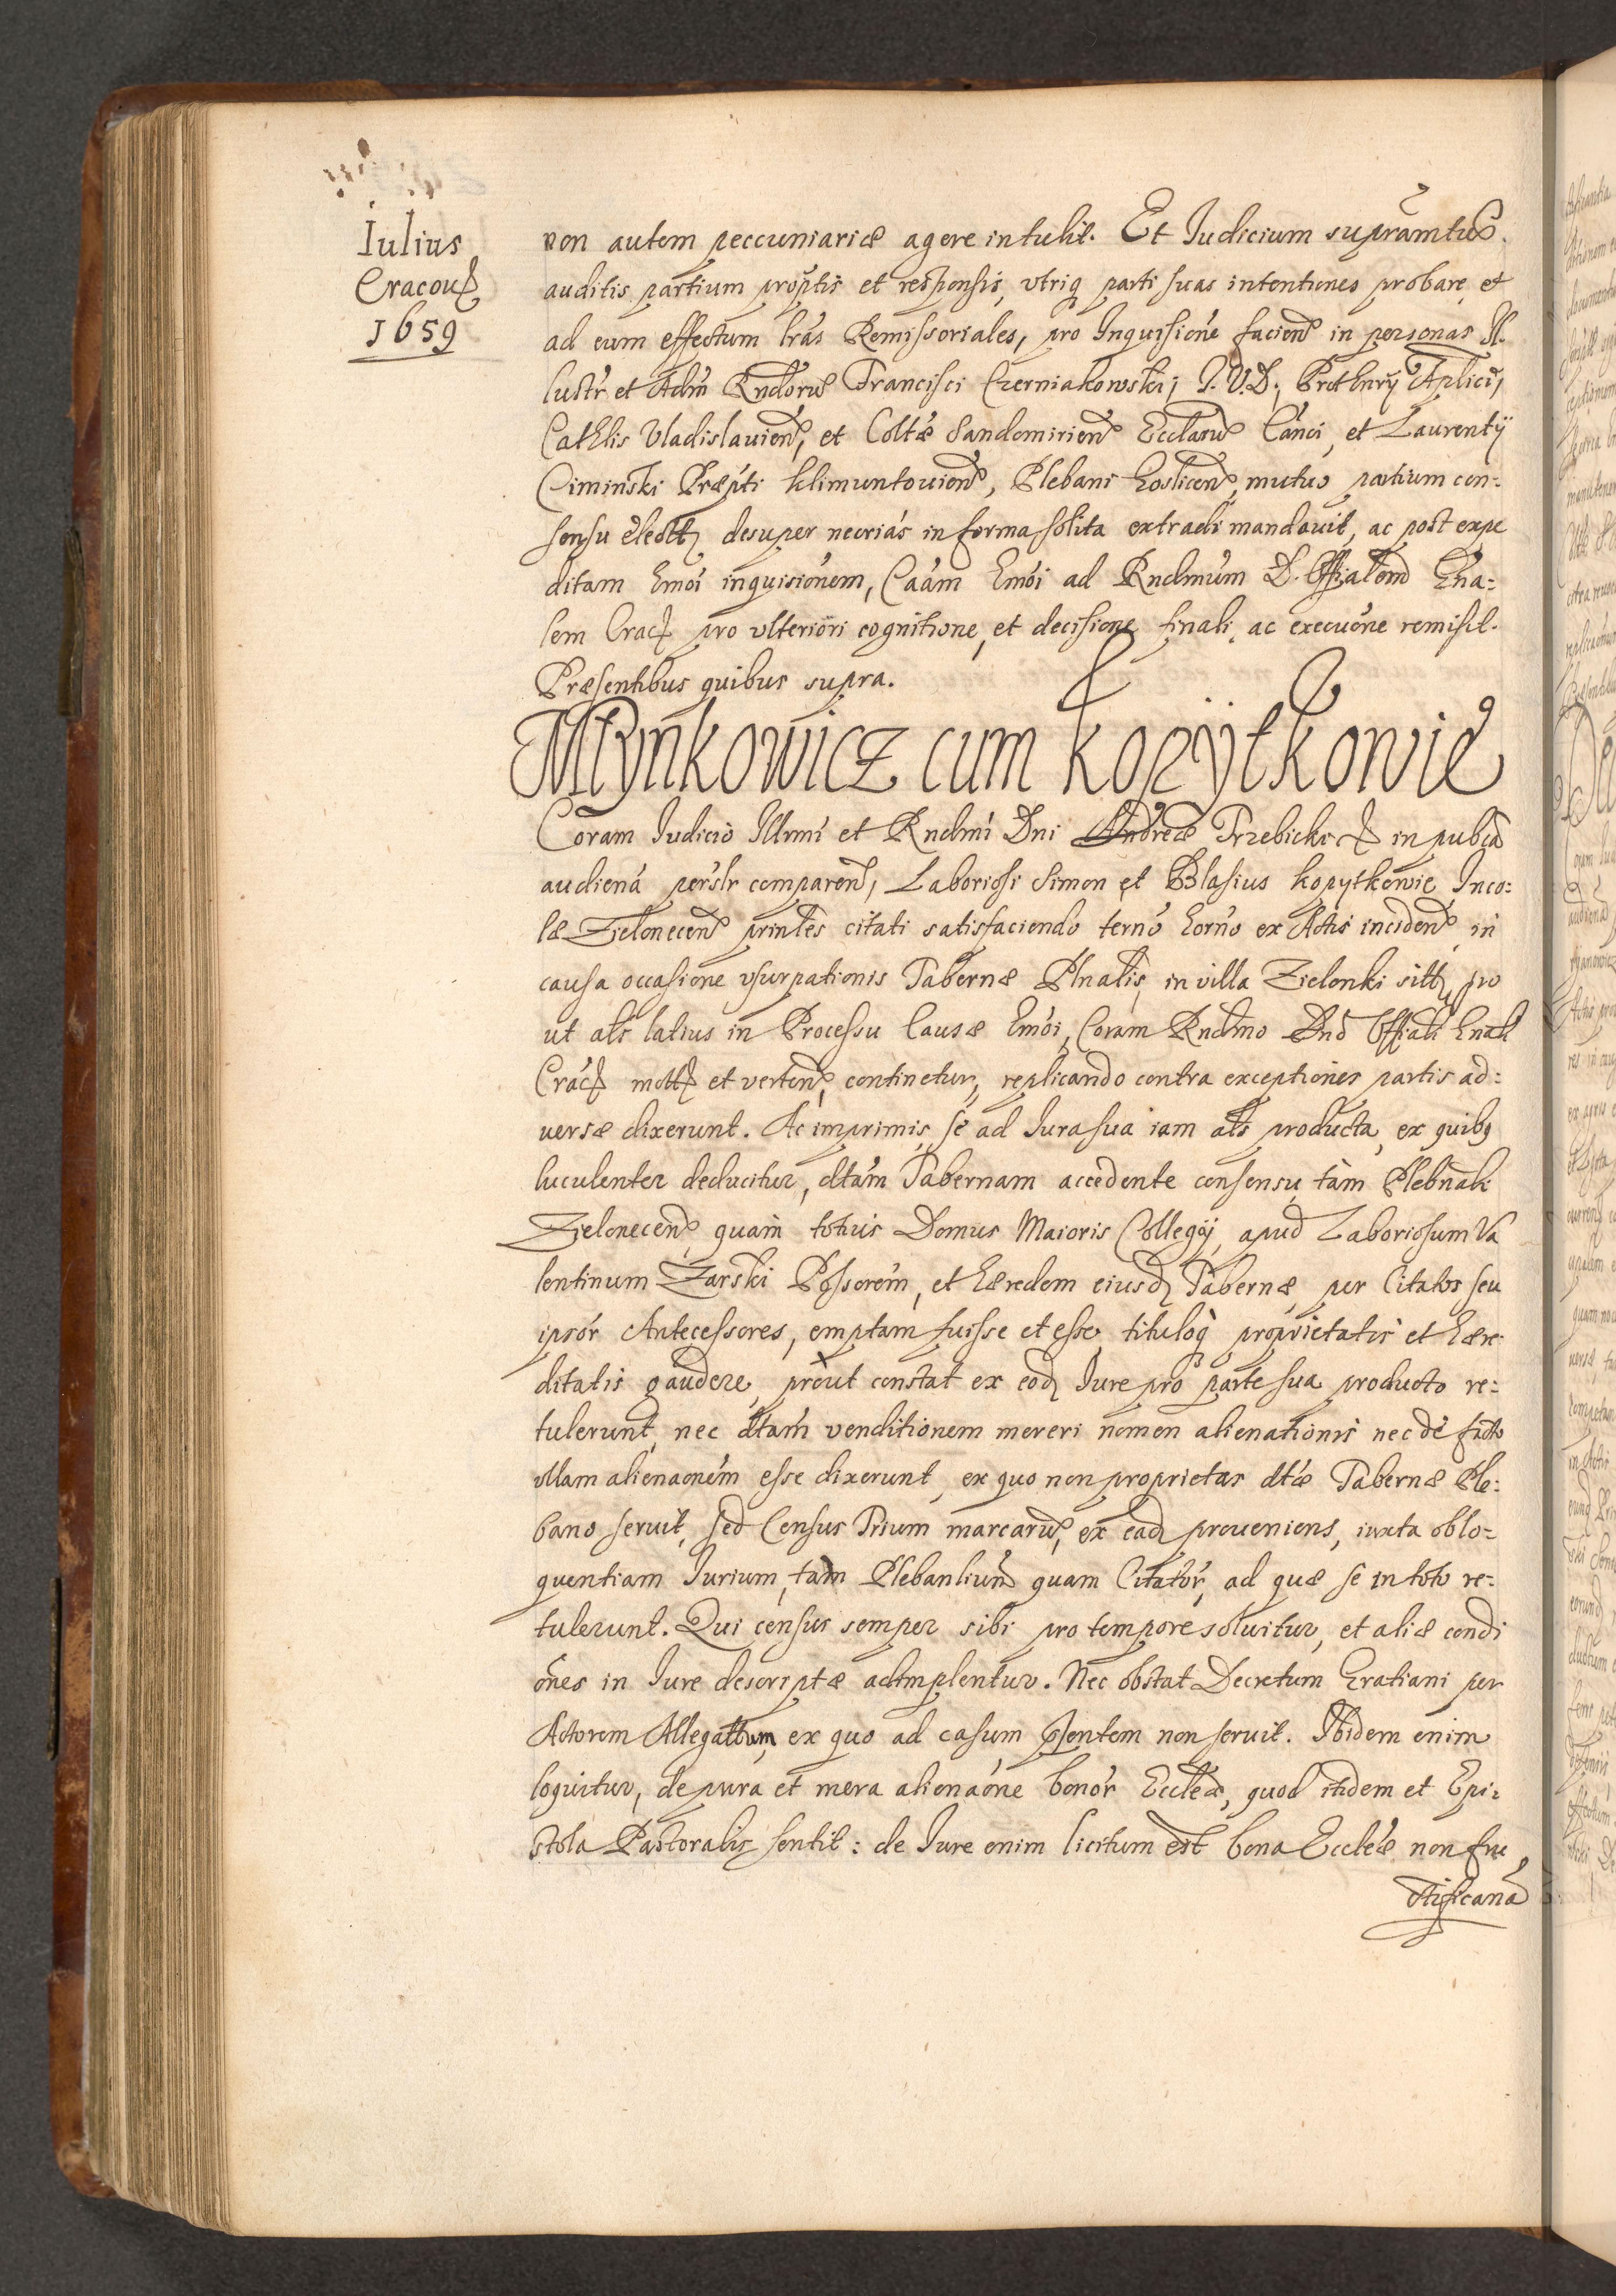 Iulius
Cracou
1659
non autem peccuniariæ agere intulit. Et Iudicium supramtum.
auditis partium proptis et responsis, vtriq parti suas intentiones probare, et
ad eum effectum lras Remissoriales, pro Inquisione facien in personas Il-
lustr et Adm Rndorum Francisci Czerniakowski, I.V.D., Protnrÿ Aplici,
Cathlis Vladislauien, et Coltæ Sandomirien Ecclarum Canci, et Laurentÿ
Ciminski Præpti Klimuntouien, Plebani Goslicen, mutuo partium con:
sensu electt desuper necrias in forma solita extradi mandauit, ac post expe
ditam hmoi inquisionem, Caam hmoi ad Rndmum D. Offialem Gna:
lem Crac pro vlteriori cognitione, et decisione finali, ac execuone remisit.
Præsentibus quibus supra.
Młynkowicz cum Kopÿtkowie
Coram Iudicio Illrmi et Rndmi Dni Andreæ Trzebicki in pubca
audiena perslr comparen, Laboriosi Simon et Blasius Kopytkowie Inco:
læ Zielonecen printes citati satisfaciendo terno horno ex Actis inciden, in
causa occasione vsurpationis Tabernæ Plnalis, in villa Zielonki sitt, pro
ut als latius in Processu Causæ hmoi, Coram Rndmo Dno Offiali Gnali
Crac mott et verten, continetur, replicando contra exceptiones partis ad:
uersæ dixerunt. Ac imprimis, se ad Iura sua iam als producta, ex quibq
luculenter deducitur, dtam Tabernam accedente consensu, tam Plebnali
Zielonecen, quam totius Domus Maioris Collegÿ, apud Laboriosum Va
lentinum Zarski Possorem, et Hæredem eiusd Tabernæ, per Citatos seu
ipsor Antecessores, emptam fuisse et esse, tituloq proprietatis et hære-
ditatis gaudere, prout constat ex eod Iure pro parte sua producto re:
tulerunt, nec dtam venditionem mereri nomen alienationis nec de facto
vllam alienaonem esse dixerunt, ex quo non proprietas dtæ Tabernæ Ple:
bano seruit, sed Census Trium marcarum, ex ead proueniens, iuxta oblo=
quentiam Iurium, tam Plebanlium quam Citator, ad quæ se in toto re:
tulerunt. Qui census semper sibi pro tempore soluitur, et aliæ condi
ones in Iure descriptæ adimplentur. Nec obstat Decretum Gratiani per
Actorem Allegatum, ex quo ad casum psentem non seruit. Ibidem enim
loquitur, de pura et mera alienaone bonor Eccleæ, quod itidem et Epi:
stola Pastoralis sentit: de Iure enim licitum est bona Eccleæ non fru
ctificana